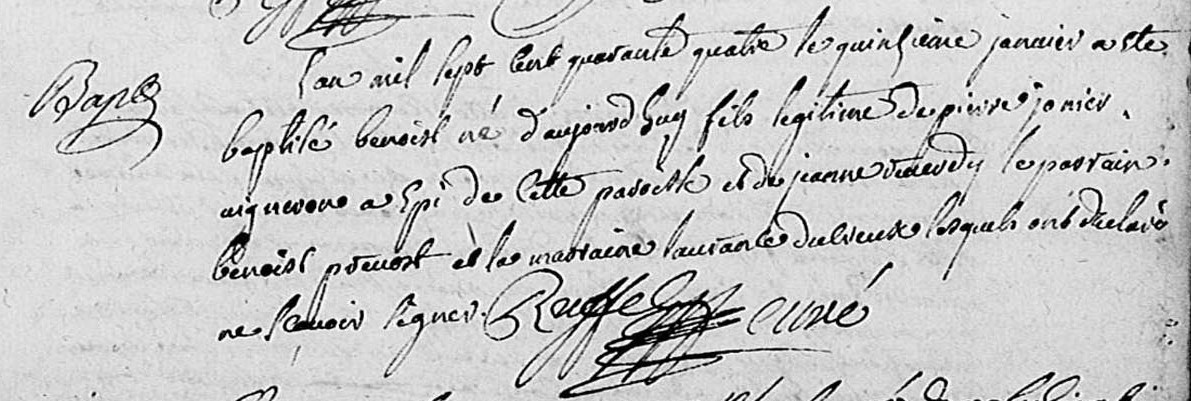 Bap.
L'an mil sept cent quarante quatre le quinzieme janvier a ete
baptisé benoist né d'aujourd'huy fils legitime de pierre jonier
vigneron a Epi de cette paroisse et de jeanne le parrain
benoist prevost et la marraine laurance lesquels ont declaré
ne scavoir signer. curé